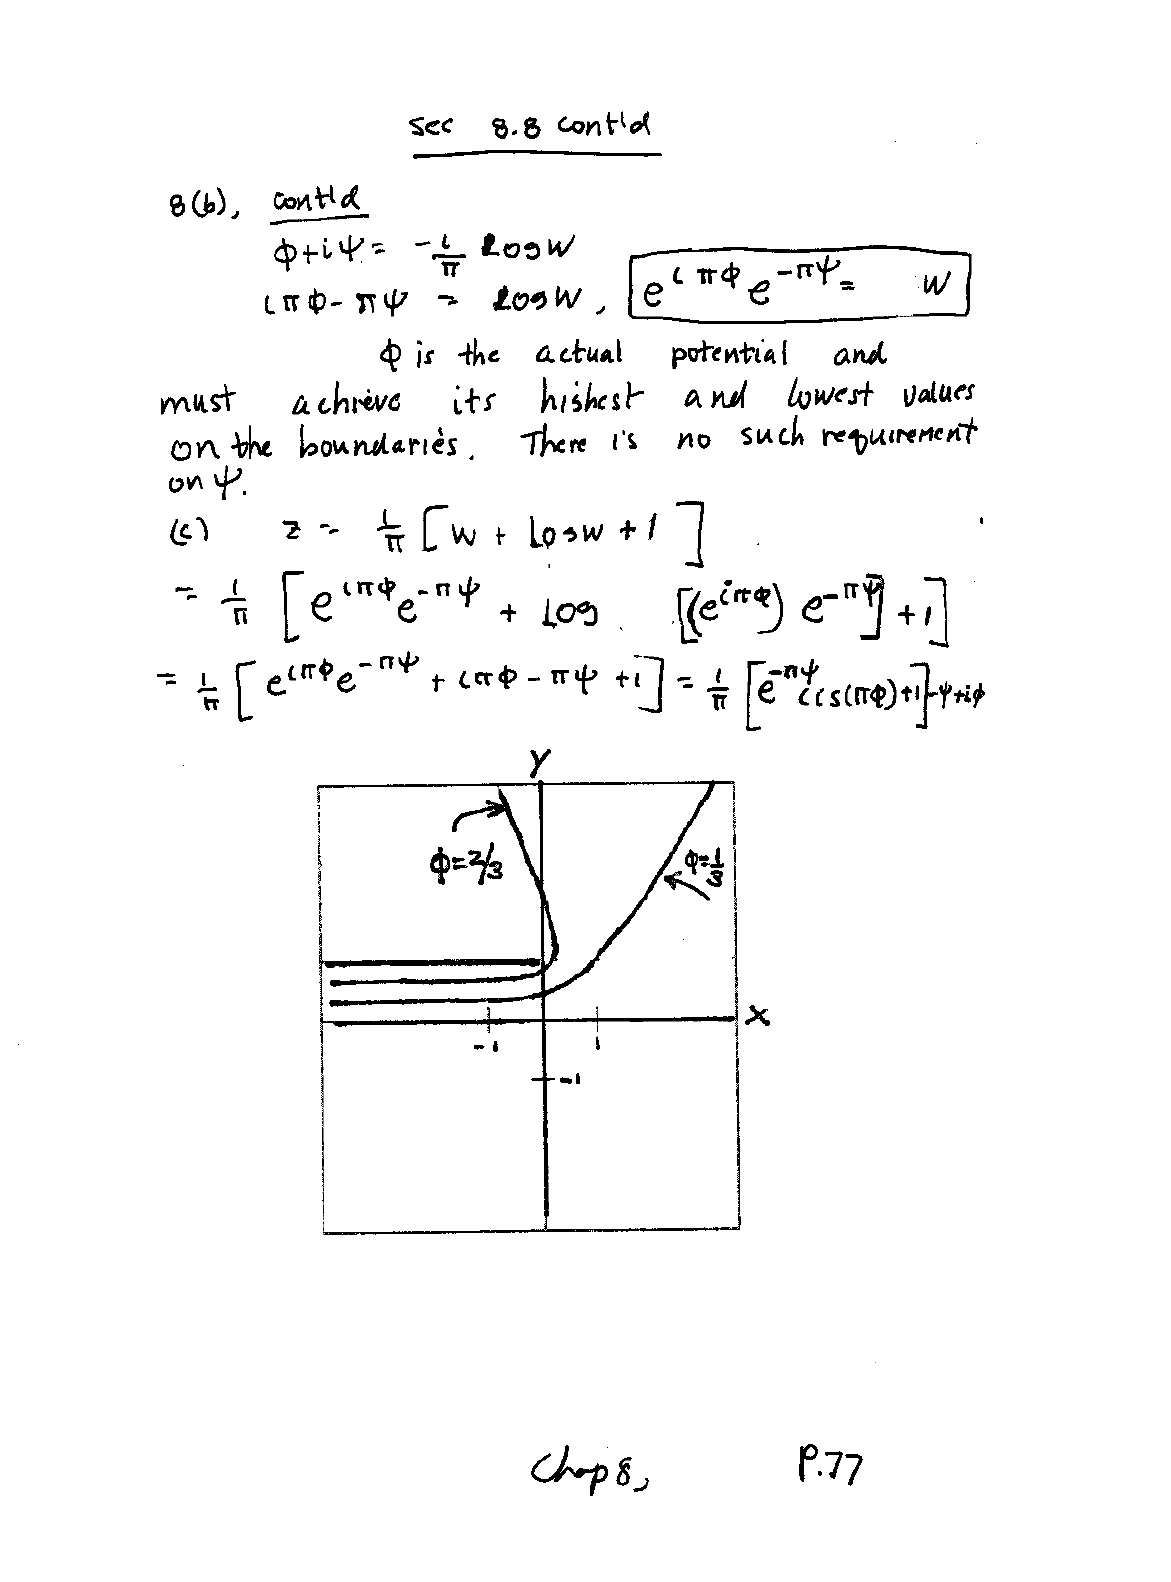 sec 8.8 cont'd
8(b), cont'd
ϕ+iψ = -i/π Log w
iπϕ - πψ = Log w, e^{iπϕ} e^{-πψ} = w
ϕ is the actual potential and
must achieve its highest and lowest values
on the boundaries. There is no such requirement
on ψ.
(c) z = 1/π [w + Log w + 1]
= 1/π [e^{iπϕ} e^{-πψ} + Log [(e^{iπϕ}) e^{-πψ}] + 1]
= 1/π [e^{iπϕ} e^{-πψ} + iπϕ - πψ + 1] = 1/π [e^{-πψ} cis(πϕ) + 1] - ψ + iϕ
Y
ϕ = 2/3
ϕ = 1/3
X
-1
1
-1
Chap 8, P.77